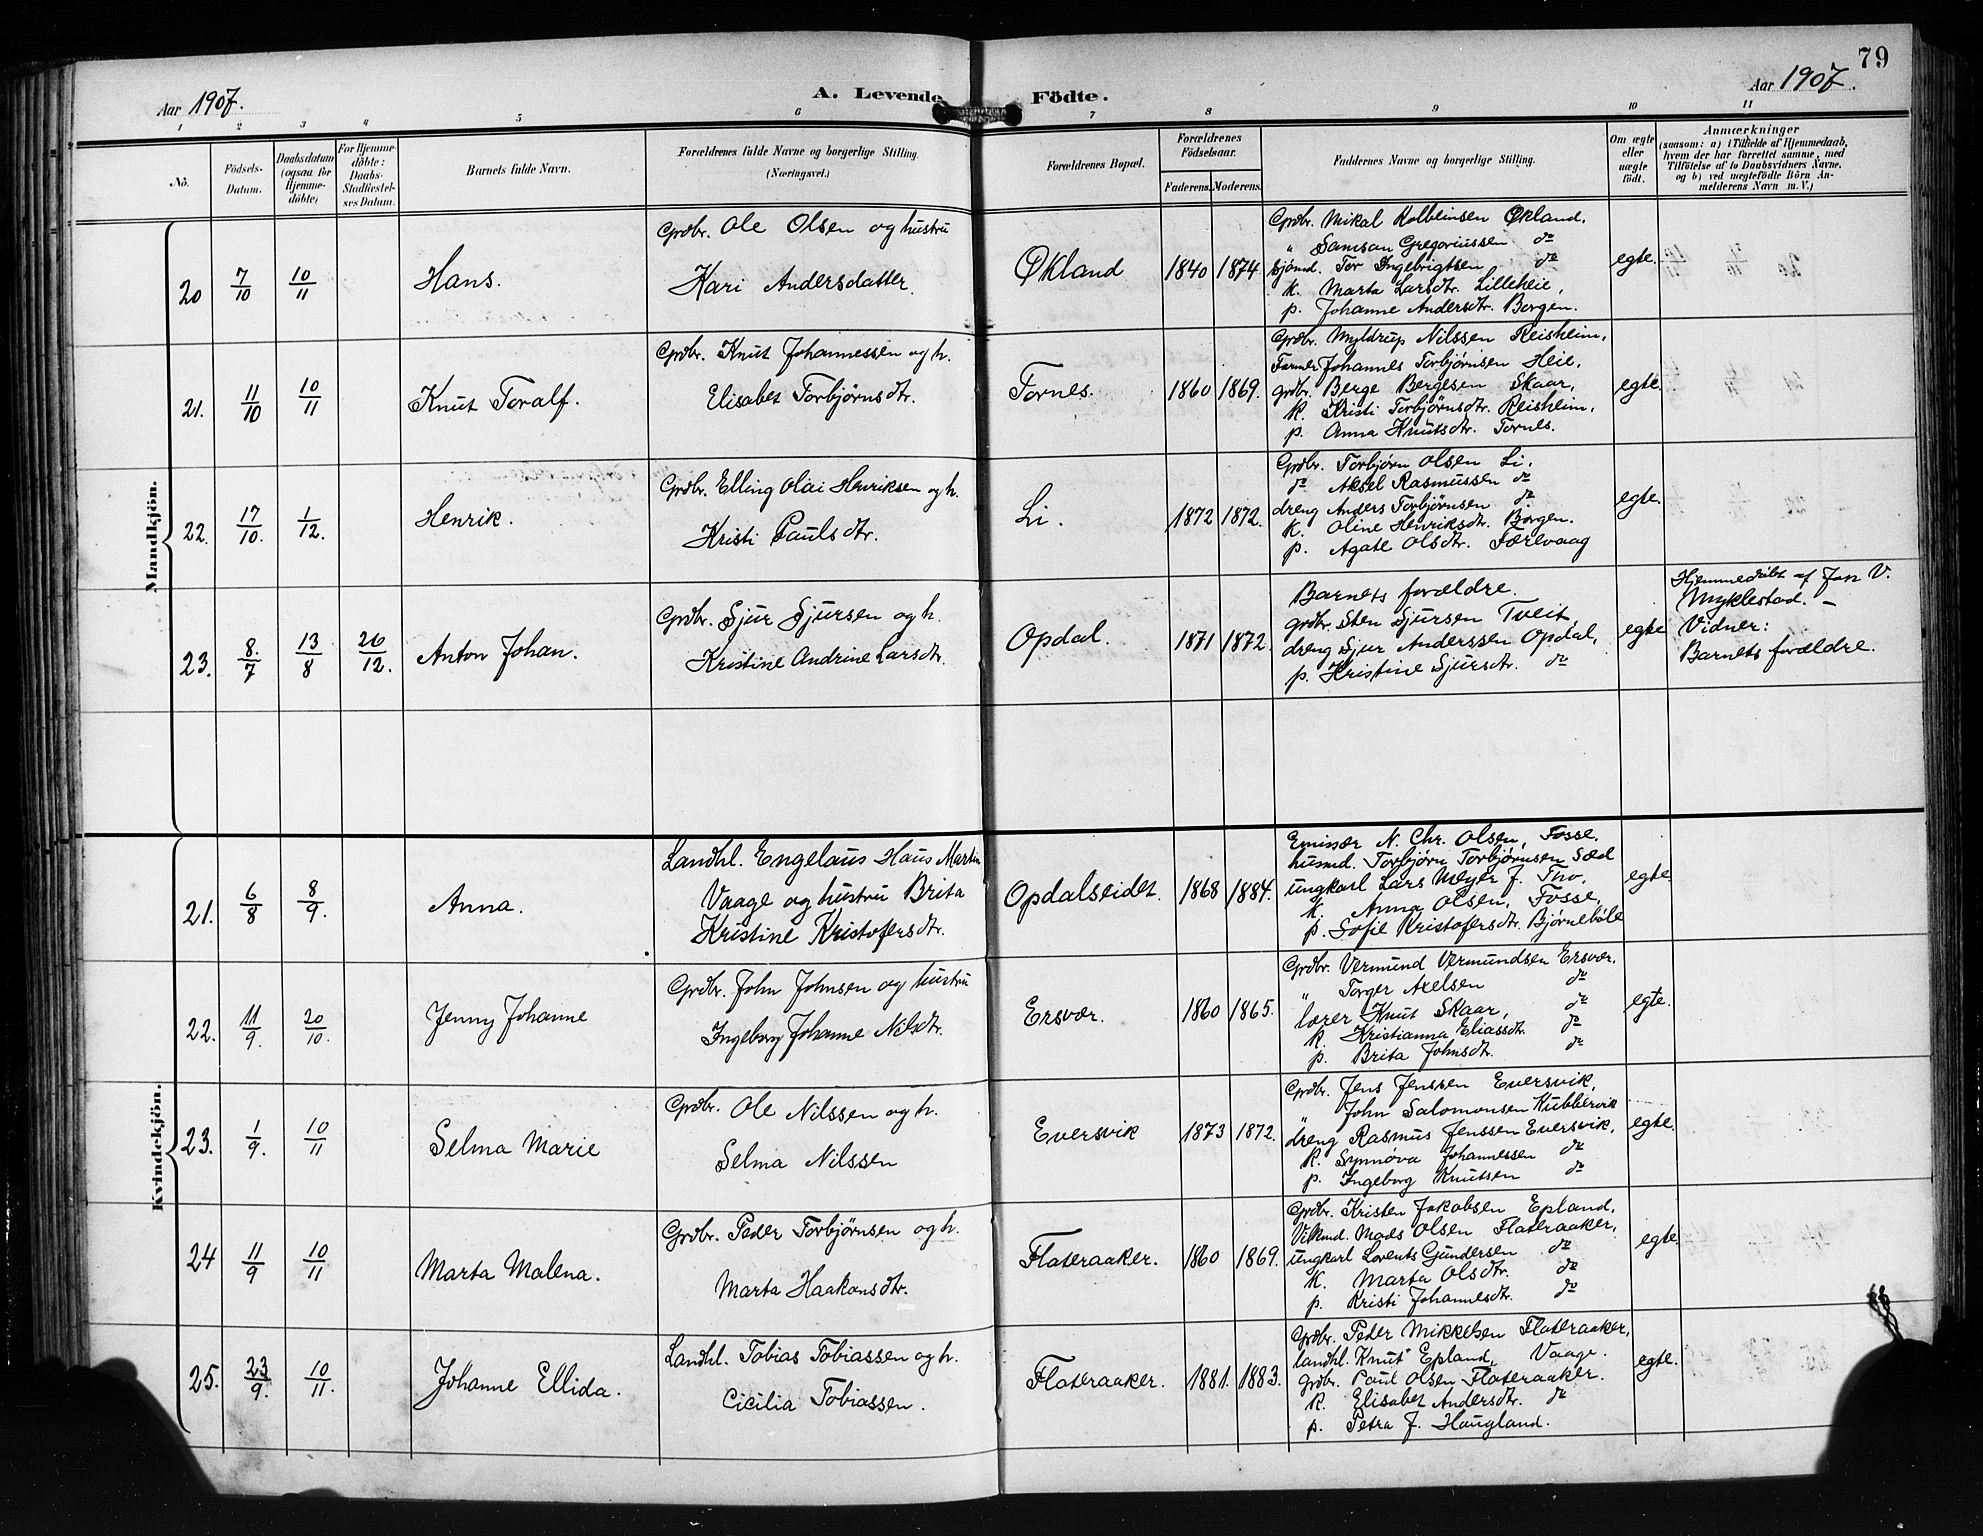 79
Aar 1907.
A. Levende Födte.
Aar 1907.
1 2 3 4 5 6 7 8 9 10 11
No.
Födsels-
Datum.
Daabsdatum
(ogsaa for
Hjemme-
döbte)
For Hjemme-
döbte:
Daabs-
Stadfæstel-
ses Datum.
Barnets fulde Navn.
Forældrenes fulde Navne og borgerlige Stilling.
(Næringsvei.)
Forældrenes Bopæl.
Forældrenes
Födselsaar.
Faderens. Moderens.
Faddernes Navne og borgerlige Stilling.
Om ægte
eller
uægte
födt.
Anmærkninger
(saasom: a) i Tilfælde af Hjemmedaab,
hvem der har forrettet samme, med
Tilföielse af to Daabsvidners Navne,
og b) ved uægtefödte Börn An-
melderens Navn m. V.)
Mandkjön.
20
7/10
10/11
Hans.
Grdbr. Ole Olsen og hustru
Kari Andersdatter
Økland
1840 1874.
Grdbr. Mikal Kolbeinsen Økland.
" Samson Gregoriussen do
Sjømd. Tor Ingebrigtsen do
K. Marta Larsdtr. Lilleheie,
p. Johanne Andersdtr. Borgen.
egte.
21.
11/10
10/11
Knut Toralf.
Grdbr. Knut Johannessen og h.
Elisabet Torbjørnsdtr.
Tornes.
1860 1869.
Grdbr. Myldrup Nilssen Reisheim,
Farmer Johannes Torbjørnsen Heie,
grdbr. Berge Bergesen Skaar,
K. Kristi Torbjørnsdtr. Reisheim,
p. Anna Knutsdtr. Tornes.
egte.
22.
17/10.
1/12.
Henrik.
Grdbr. Elling Olai Henriksen og h.
Kristi Paulsdtr.
Li.
1872 1872.
Grdbr. Torbjørn Olsen Li.
do Aksel Rasmussen do
dreng Anders Torbjørnsen do
K. Oline Henriksdtr. Borgen.
p. Agate Olsdtr. Færevaag
egte.
23.
8./7
13/8
26/12.
Anton Johan.
Grdbr. Sjur Sjursen og h.
Kristine Andrine Larsdtr.
Opdal.
1871 1872.
Barnets forældre.
grdbr. Sten Sjursen Tveit,
dreng Sjur Anderssen Opdal,
p. Kristine Sjursdtr. do
egte
Hjemmedøbt af Jon V.
Myklestad. –
Vidner:
Barnets forældre.
Kvindekjön.
21.
6/8
8/9.
Anna.
Landhl. Engelaus Haus Martin
Vaage og hustru Brita
Kristine Kristofersdtr.
Opdalseidet.
1868 1884.
Emissær N. Chr. Olsen, Fosse,
husmd. Torbjørn Torbjørnsen Sæd
ungkarl Lars Meyer J. Tho.
K. Anna Olsen, Fosse,
p. Sofie Kristofersdtr. Bjørnebøle
egte.
22.
11/9.
20/10.
Jenny Johanne
Grdbr. John Johnsen og hustru
Ingeborg Johanne Nilsdtr.
Ersvær.
1860 1865.
Grdbr. Vermund Vermundsen Ersvær.
" Torger Axelsen do
lærer Knut Skaar, do
K. Kristianna Eliassdtr. do
p. Brita Johnsdtr. do
egte.
23.
1/9.
10/11
Selma Marie
Grdbr. Ole Nilssen og h.
Selma Nilssen
Eversvik
1873 1872.
Grdbr. Jens Jenssen Eversvik,
" John Salomonsen Kubbervik
dreng Rasmus Jenssen Eversvik,
K. Synnøva Johannessen do
p. Ingeborg Knutsen do
egte.
24
11/9
10/11
Marta Malena.
Grdbr. Peder Torbjørnsen og h.
Marta Haakonsdtr.
Flateraaker.
1860 1869.
Grdbr. Kristen Jakobsen Epland,
Vilkmd. Mads Olsen Flateraaker,
ungkarl Lorents Gundersen do
K. Marta Olsdtr. do
p. Kristi Johannesdtr. do
egte.
25.
23/9.
10/11.
Johanne Ellida.
Landhl. Tobias Tobiassen og h.
Cicilia Tobiassen.
Flateraaker.
1881. 1883.
Grdbr. Peder Mikkelsen Flateraaker,
landhl. Knut Epland, Vaage.
grdbr. Paul Olsen Flateraaker.
K. Elisabet Andersdtr. do
p. Petra J. Haugland.
egte.